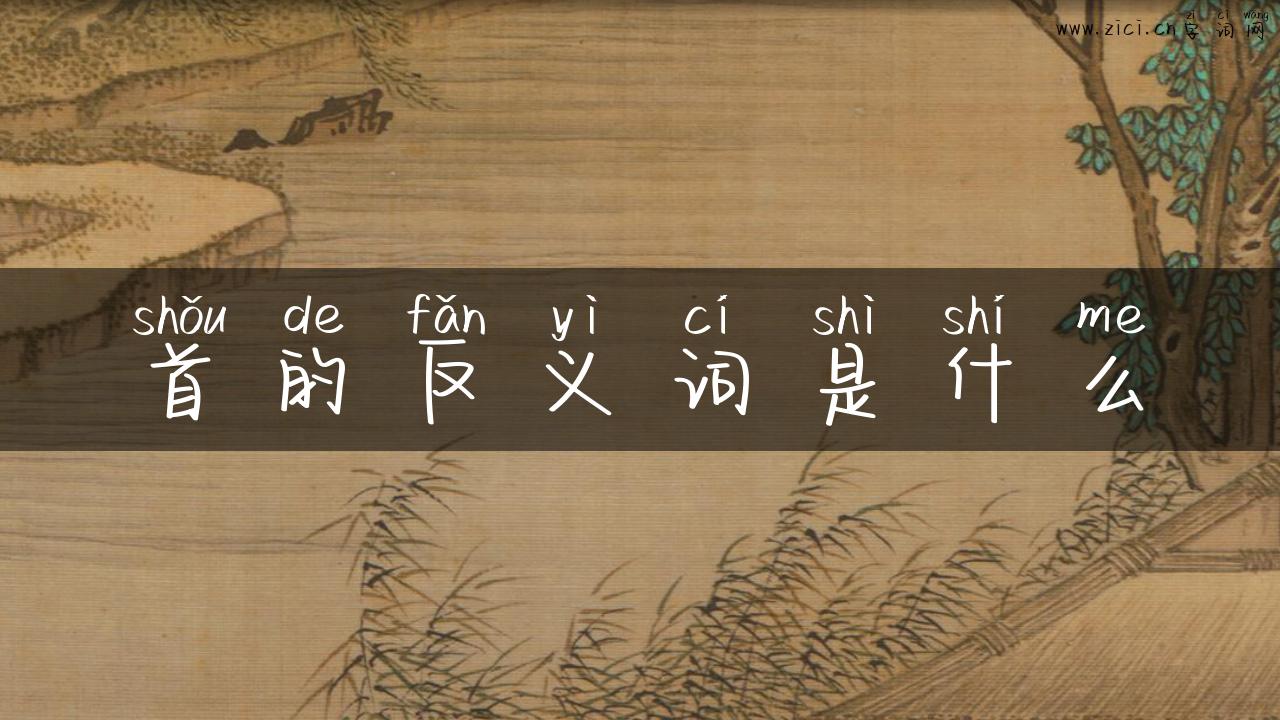 zì cí wǎng
www.zici.cn 字词网
shǒu de fǎn yì cí shì shí me
首的反义词是什么